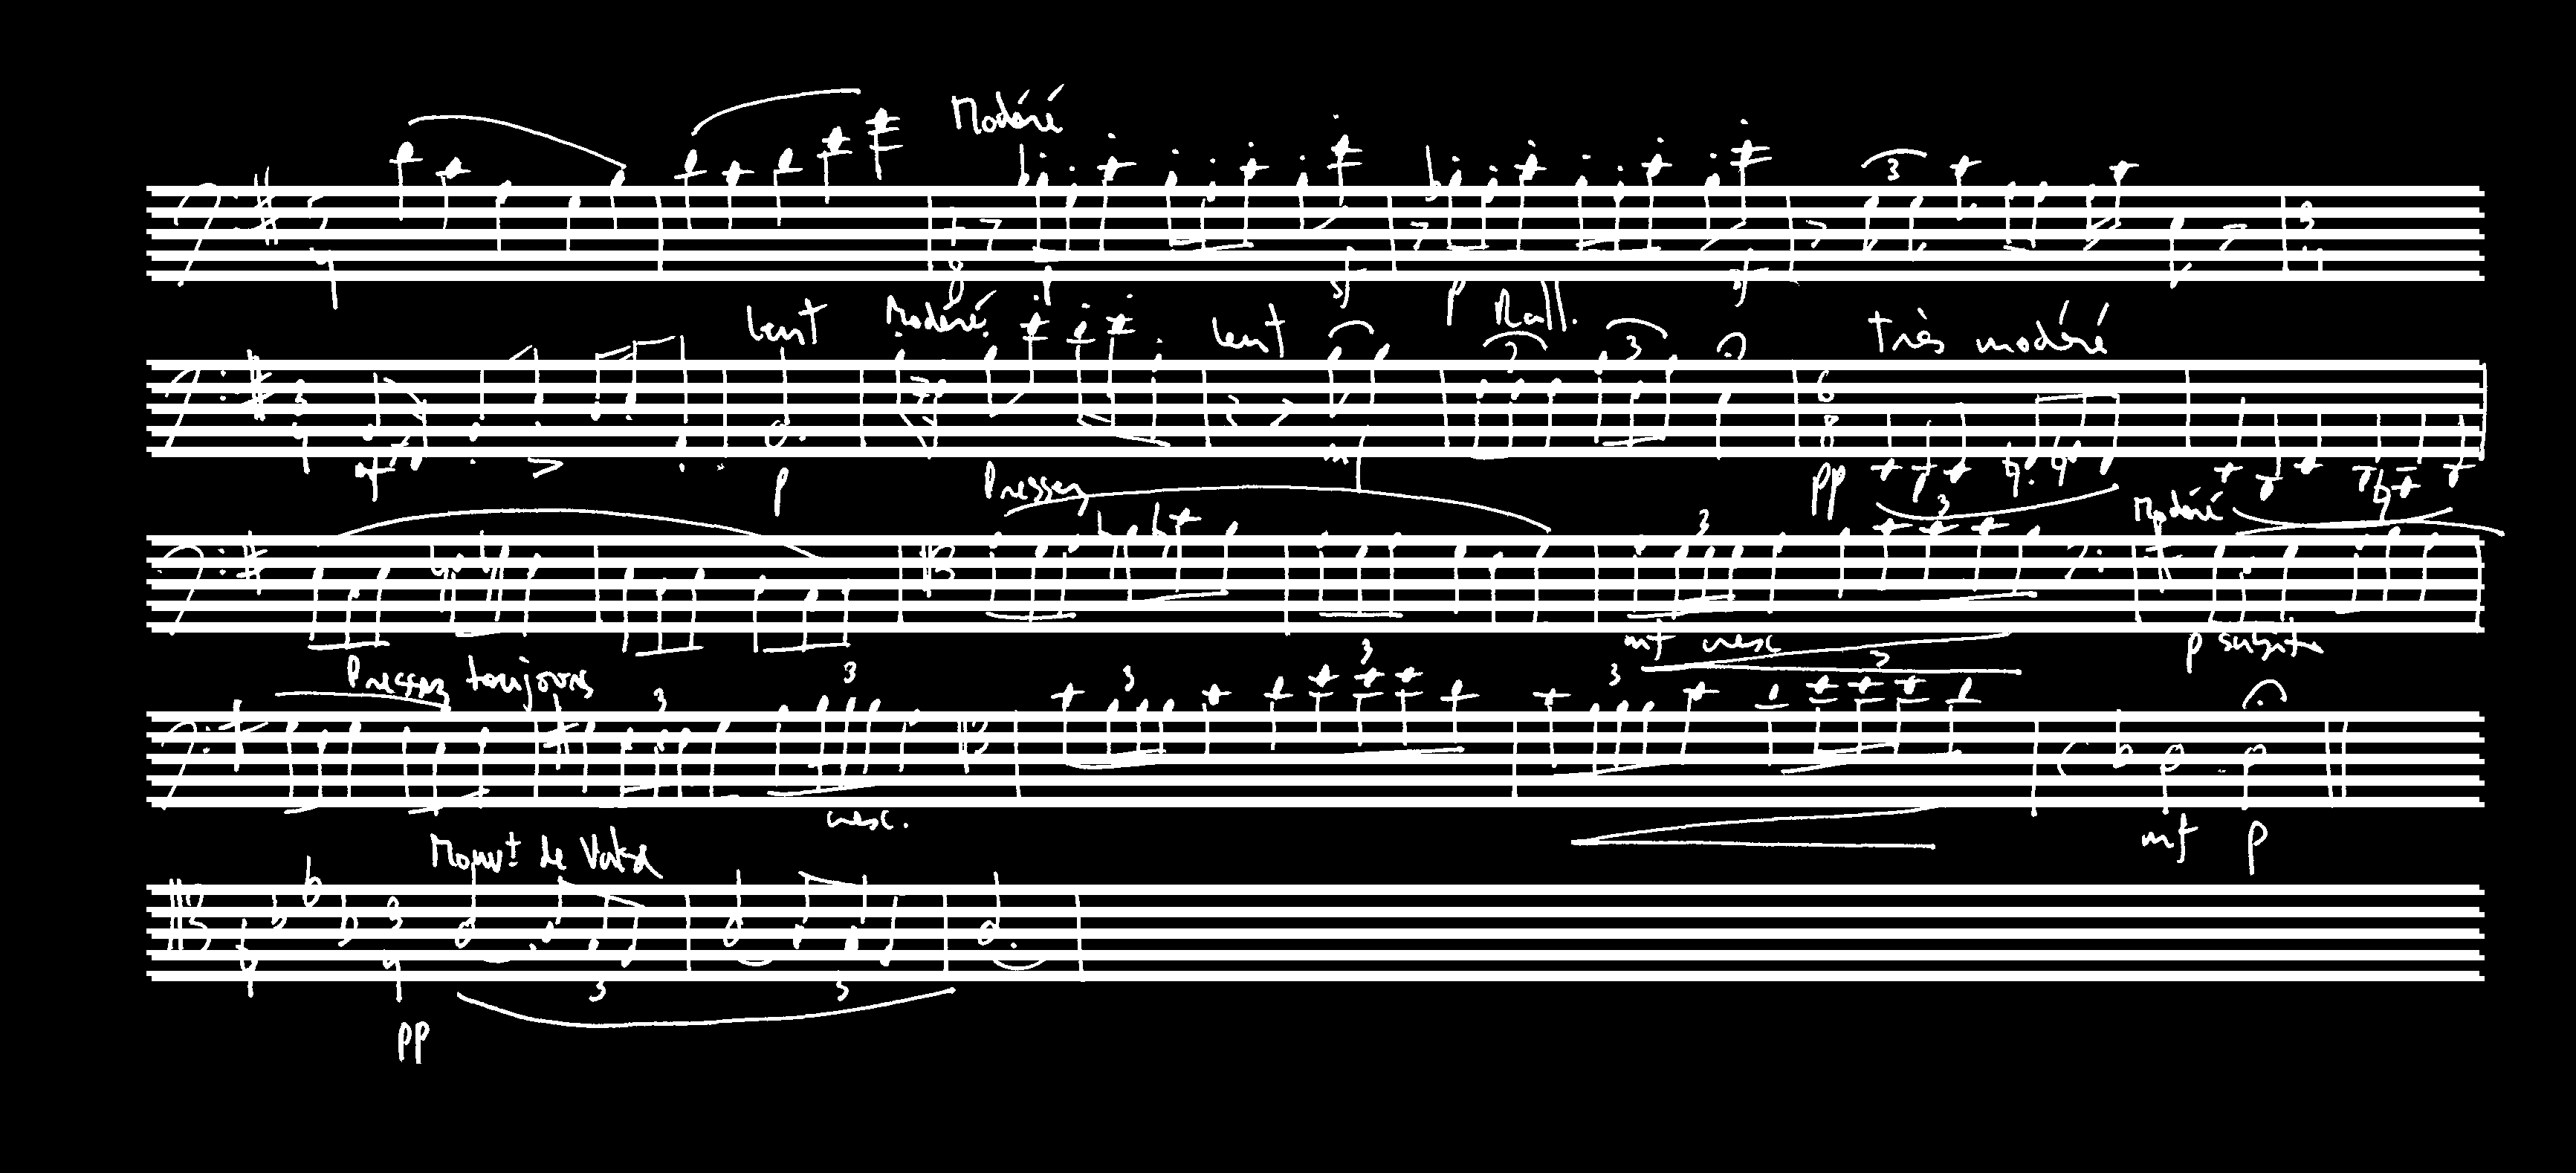 Modéré
3 4 7 8 p sf p sf 3 3 4
Lent Modéré Lent Rall. Très modéré
3 4 mf p mf 3 3 6 8 pp
Pressez 3 3 Modéré
mf cresc p subito
Pressez toujours 3 3 3 3 3
cresc. mf p
Mouvt de Valse
3 4 3 3
pp